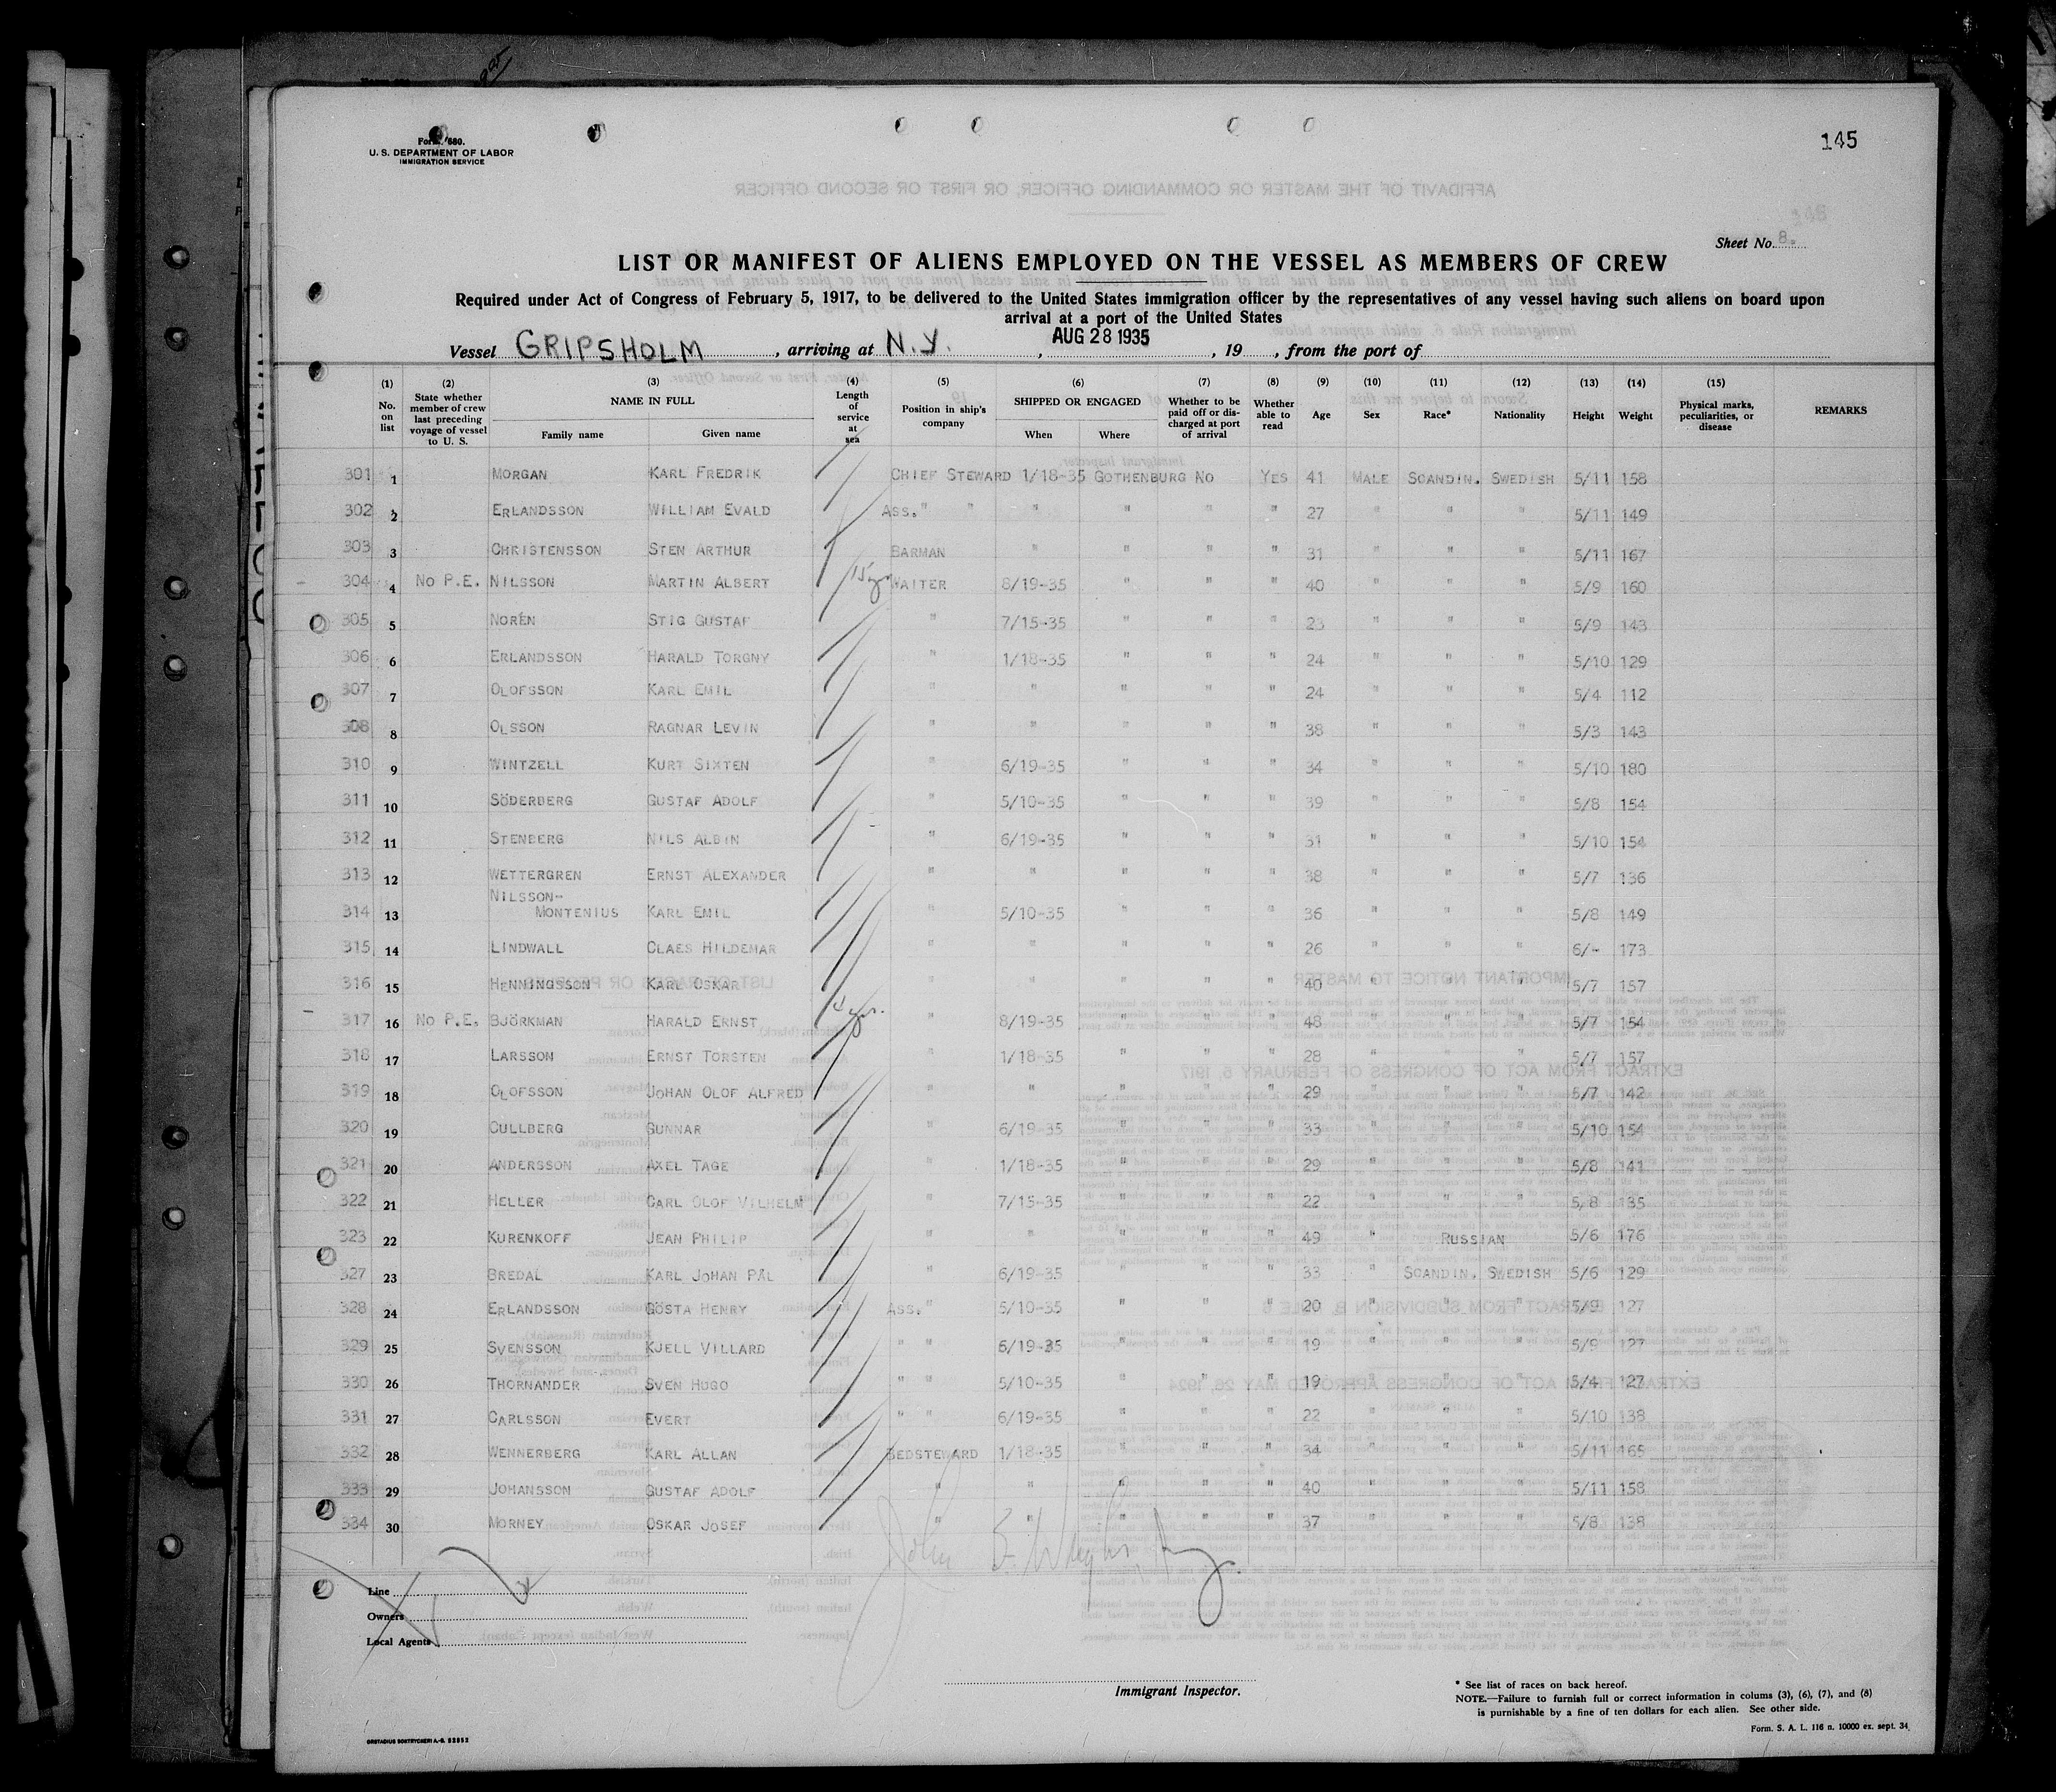 Form. 680.
U. S. DEPARTMENT OF LABOR
IMMIGRATION SERVICE
145
Sheet No. 8.
LIST OR MANIFEST OF ALIENS EMPLOYED ON THE VESSEL AS MEMBERS OF CREW
Required under Act of Congress of February 5, 1917, to be delivered to the United States immigration officer by the representatives of any vessel having such aliens on board upon
arrival at a port of the United States
Vessel GRIPSHOLM, arriving at N.Y., AUG 28 1935, 19, from the port of
(1) No. on list (2) State whether member of crew last preceding voyage of vessel to U. S. (3) NAME IN FULL Family name Given name (4) Length of service at sea (5) Position in ship's company (6) SHIPPED OR ENGAGED When Where (7) Whether to be paid off or discharged at port of arrival (8) Whether able to read (9) Age (10) Sex (11) Race* (12) Nationality (13) Height (14) Weight (15) Physical marks, peculiarities, or disease REMARKS
301 1 MORGAN KARL FREDRIK CHIEF STEWARD 1/18-35 GOTHENBURG NO YES 41 MALE SCANDIN. SWEDISH 5/11 158
302 2 ERLANDSSON WILLIAM EVALD ASS. " " " " " " 27 " " " 5/11 149
303 3 CHRISTENSSON STEN ARTHUR BARMAN " " " " 31 " " " 5/11 167
304 4 NO P.E. NILSSON MARTIN ALBERT 15 y. WAITER 8/19-35 " " " 40 " " " 5/9 160
305 5 NORÉN STIG GUSTAF " 7/15-35 " " " 23 " " " 5/9 143
306 6 ERLANDSSON HARALD TORGNY " 1/18-35 " " " 24 " " " 5/10 129
307 7 OLOFSSON KARL EMIL " " " " " 24 " " " 5/4 112
308 8 OLSSON RAGNAR LEVIN " " " " " 38 " " " 5/3 143
310 9 WINTZELL KURT SIXTEN " 6/19-35 " " " 34 " " " 5/10 180
311 10 SÖDERBERG GUSTAF ADOLF " 5/10-35 " " " 39 " " " 5/8 154
312 11 STENBERG NILS ALBIN " 6/19-35 " " " 31 " " " 5/10 154
313 12 WETTERGREN ERNST ALEXANDER " " " " " 38 " " " 5/7 136
NILSSON-
314 13 MONTENIUS KARL EMIL " 5/10-35 " " " 36 " " " 5/8 149
315 14 LINDWALL CLAES HILDEMAR " " " " " 26 " " " 6/- 173
316 15 HENNINGSSON KARL OSKAR " " " " " 40 " " " 5/7 157
317 16 NO P.E. BJÖRKMAN HARALD ERNST " 8/19-35 " " " 48 " " " 5/7 154
318 17 LARSSON ERNST TORSTEN " 1/18-35 " " " 28 " " " 5/7 157
319 18 OLOFSSON JOHAN OLOF ALFRED " " " " " 29 " " " 5/7 142
320 19 CULLBERG GUNNAR " 6/19-35 " " " 33 " " " 5/10 154
321 20 ANDERSSON AXEL TAGE " 1/18-35 " " " 29 " " " 5/8 141
322 21 HELLER CARL OLOF VILHELM " 7/15-35 " " " 22 " " " 5/8 135
323 22 KURENKOFF JEAN PHILIP " " " " " 49 " RUSSIAN 5/6 176
327 23 BREDAL KARL JOHAN PÅL " 6/19-35 " " " 33 " SCANDIN. SWEDISH 5/6 129
328 24 ERLANDSSON GÖSTA HENRY ASS. " 5/10-35 " " " 20 " " " 5/9 127
329 25 SVENSSON KJELL VILLARD " " 6/19-35 " " " 19 " " " 5/9 127
330 26 THORNANDER SVEN HUGO " " 5/10-35 " " " 19 " " " 5/4 127
331 27 CARLSSON EVERT " " 6/19-35 " " " 22 " " " 5/10 138
332 28 WENNERBERG KARL ALLAN BEDSTEWARD 1/18-35 " " " 34 " " " 5/11 165
333 29 JOHANSSON GUSTAF ADOLF " " " " " 40 " " " 5/11 158
334 30 MORNEY OSKAR JOSEF " " " " " 37 " " " 5/8 138
Line
Owners
Local Agents
Immigrant Inspector.
* See list of races on back hereof.
NOTE.—Failure to furnish full or correct information in colums (3), (6), (7), and (8)
is punishable by a fine of ten dollars for each alien. See other side.
Form. S. A. L. 116 n. 10000 ex. sept. 34.